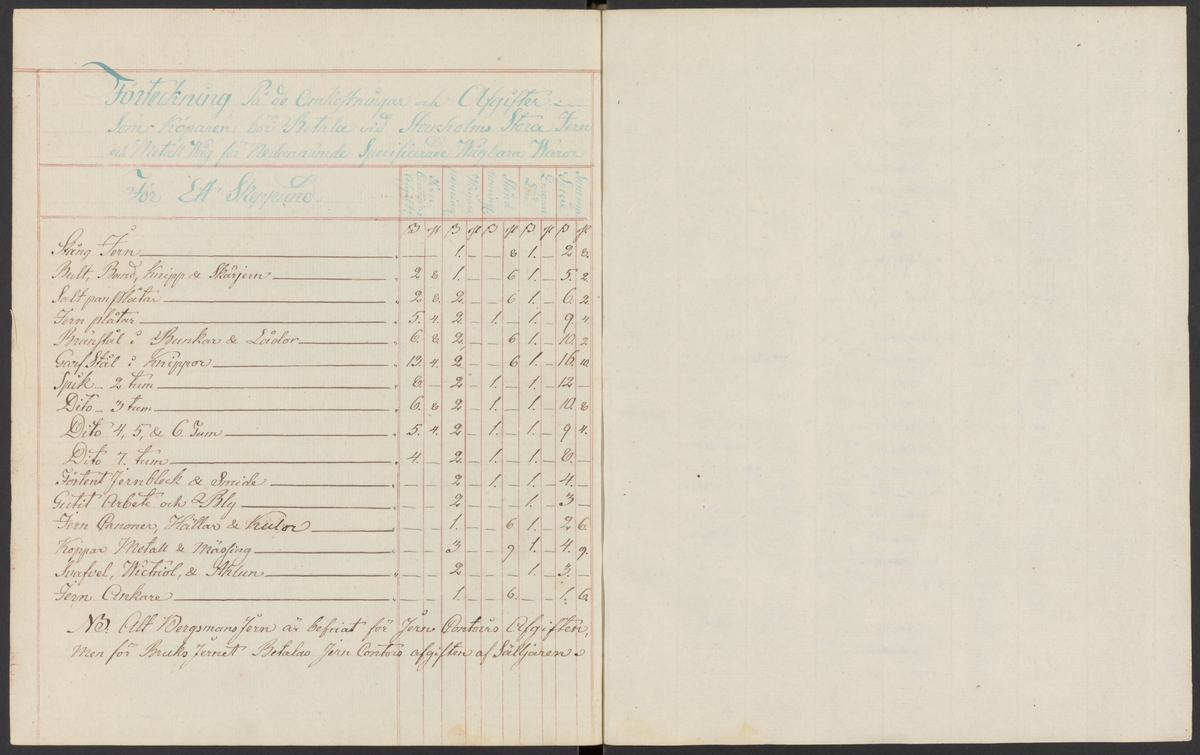 Förteckning På de Omkostningar och Afgifter
Som Köparen bör Betala vid Stockholms Stora Jern
och Metall Wåg för Nedannämde Specificerade Wågbara Waror
För Ett Skeppund.
Stång Jern — — 1. — — 8 1. — 2 8.
Bult, Band, Knipp & Skärjern 2 8 1. — — 6 1. — 5. 2.
Saltpanplåtar 2 8. 2. — — 6 1. — 6. 2
Jern plåtar 5. 4. 2. — 1. — 1. — 9. 4.
Bränstål i Bunkar & Lådor 6. 8 2. — — 6 1. — 10. 2
Garf Stål i Knippor 13. 4. 2 — — 6 1. — 16. 10.
Spik — 2 tum 8. — 2 — 1. — 1. — 12 —
Dito — 3 tum 6. 8 2 — 1. — 1. — 10. 8
Dito 4, 5, & 6 Tum 5. 4. 2 — 1. — 1. — 9 4.
Dito 7. tum 4. — 2. — 1. — 1. — 8. —
Förtent Jernbleck & Smide — — 2 — 1. — 1. — 4. —
Gutit Arbete och Bly — — 2 — — — 1. — 3 —
Jern Canoner, Hällar & Kulor — — 1. — — 6 1. — 2 6.
Koppar Metall & Mässing — — 3 — — 9 1. — 4. 9.
Swafvel, Wictriol, & Allun — — 2 — — — 1. — 3. —
Jern Ankare — — 1. — — 6. — — 1. 6.
NB. Alt Bergsmans Jern är befriat för Jern Contoirs Afgiften,
Men för Bruks Jernet Betalas Jern Contors afgiften af Säljaren.